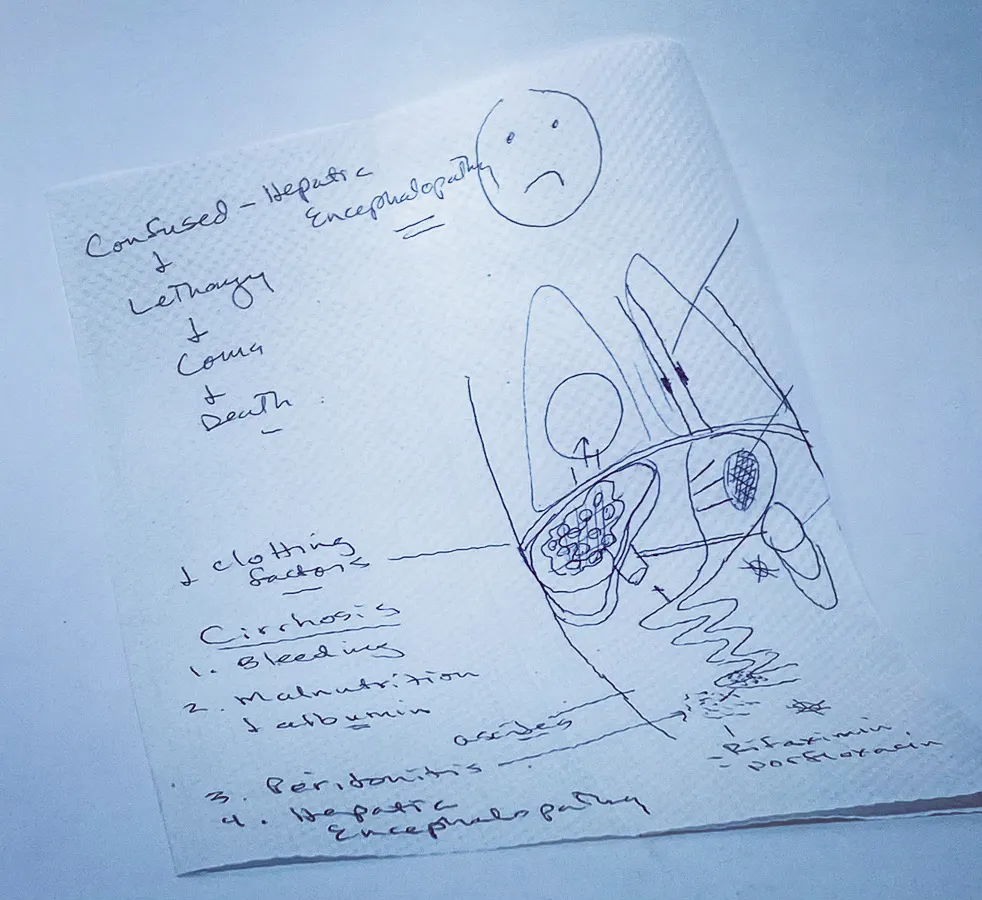 Confused - Hepatic
Encephalopathy
↓
Lethargy
↓
Coma
↓
Death
↓ clotting
factors
Cirrhosis
1. Bleeding
2. Malnutrition
↓ albumin
ascites
3. Peridonitis
4. Hepatic
Encephalopathy
- Rifaximin
- norfloxacin